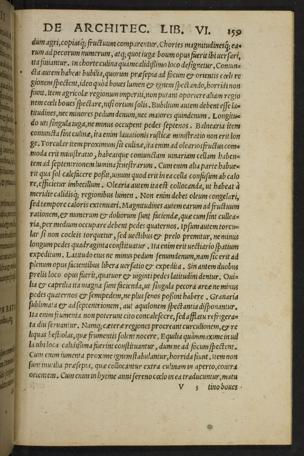 DE ARCHITEC. LIB. VI. 159
dum agri, copiaq́; fructuum comparentur. Chortes magnitudinesq́; ea-
rum ad pecorum numerum, atq; quot iuga boum opus fuerit ibi uersari,
ita finiantur. In chorte culina quàm calidissimo loco designetur. Coniun-
cta autem habeat bubilia, quorum præsepia ad focum & orientis cœli re
gionem spectent, ideo quòd boues lumen & ignem spectando, horridi non
fiunt. Item agricolæ regionum imperiti, non putant oportere aliam regio
nem cœli boues spectare, nisi ortum solis. Bubilium autem debent esse la-
titudines, nec minores pedum denum, nec maiores quindenum. Longitu-
do uti singula iuga, ne minus occupent pedes septenos. Balnearia item
coniuncta sint culinæ, ita enim lauationis rusticæ ministratio non erit lon
ge. Torcular item proximum sit culinæ, ita enim ad olearios fructus com-
moda erit ministratio, habeatque coniunctam uinariam cellam haben-
tem ad septentrionem lumina fenestrarum. Cum enim alia parte habue-
rit quà sol calefacere possit, uinum quod erit in ea cella confusum ab calo
re, efficietur imbecillum. Olearia autem ita est collocanda, ut habeat à
meridie calidisq́; regionibus lumen. Non enim debet oleum congelari,
sed tempore caloris extenuari. Magnitudines autem earum ad fructuum
rationem, & numerum & doliorum sunt faciendæ, quæ cum sint cullea-
ria, per medium occupare debent pedes quaternos. Ipsum autem torcu-
lar si non cocleis torquetur, sed uectibus & prelo premitur, ne minus
longum pedes quadraginta constituatur. Ita enim erit uectiario spatium
expeditum. Latitudo eius ne minus pedum senumdenum, nam sic erit ad
plenum opus facientibus libera uersatio & expedita. Sin autem duobus
prelis loco opus fuerit, quatuor & uiginti pedes latitudini dentur. Oui-
lia & caprilia ita magna sunt facienda, ut singula pecora areæ ne minus
pedes quaternos & semipedem, ne plus senos possint habere. Granaria
sublimata & ad septentrionem, aut aquilonem spectantia disponantur.
Ita enim frumenta non poterunt cito concalescere, sed afflatu refrigera-
ta diu seruantur. Namq; cæteræ regiones procreant curculionem, & re
liquas bestiolas, quæ frumentis solent nocere. Equilia quàm maxime in uil
la ubi loca calidissima fuerint constituantur, dum ne ad focum spectent.
Cum enim iumenta proxime ignem stabulantur, horrida fiunt. Item non
sunt inutilia præsepia, quæ collocantur extra culinam in aperto, contra
orientem. Cum enim in hyeme anni sereno cœlo in ea traducuntur, matu
V 3 tino boues